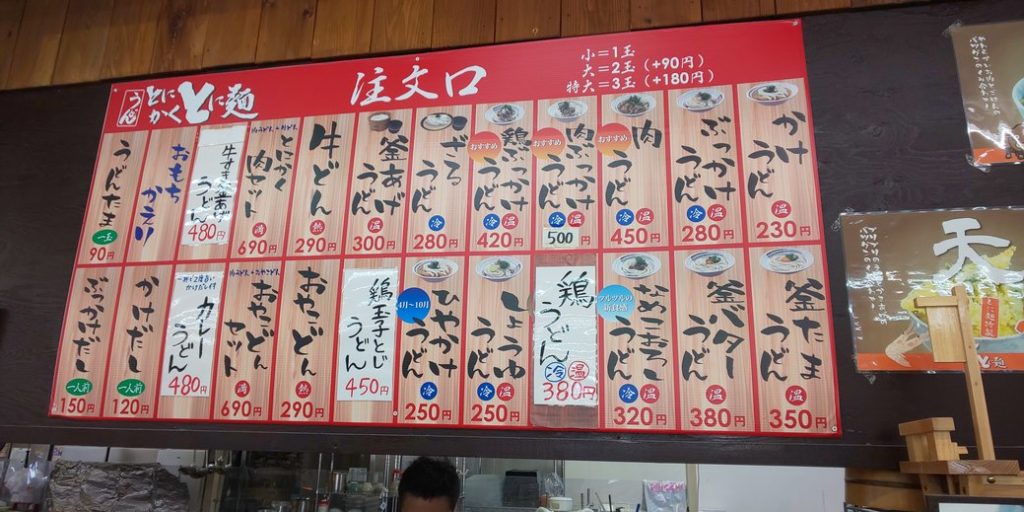 うどん
とにかくとに麺
注文口
小＝1玉
大＝2玉（+90円）
特大＝3玉（+180円）
かけうどん
温
230円
ぶっかけうどん
冷 温
280円
おすすめ
肉うどん
冷 温
450円
おすすめ
肉ぶっかけうどん
冷 温
500
おすすめ
鶏ぶっかけうどん
冷 温
420円
ざるうどん
冷
280円
釜あげうどん
温
300円
牛どん
熱
290円
とにかく肉セット
満
690円
牛すき釜あげうどん
480円
おもちかえり
うどんたま
一玉
90円
釜たまうどん
温
350円
釜バターうどん
温
380円
ツルツルの新食感
なめこおろしうどん
冷 温
320円
鶏うどん
冷 温
380円
しょうゆうどん
冷 温
250円
4月〜10月
ひやかけうどん
冷
250円
鶏玉子とじうどん
450円
おやこどん
熱
290円
おやこどんセット
満
690円
カレーうどん
480円
かけだし
一人前
120円
ぶっかけだし
一人前
150円
天